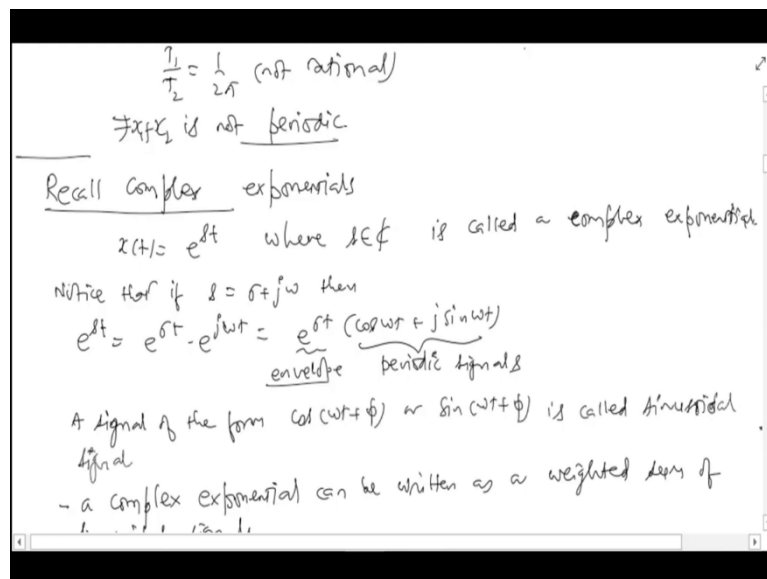 T₁/T₂ = 1/2π (not rational)
⇒ x₁+x₂ is not periodic
Recall complex exponentials
x(t) = e^{st} where s∈ℂ is called a complex exponential
Notice that if s = σ+jω then
e^{st} = e^{σt} · e^{jωt} = e^{σt} (cosωt + j sinωt)
envelope periodic signals
A signal of the form cos(ωt+ϕ) or sin(ωt+ϕ) is called sinusoidal
signal
- a complex exponential can be written as a weighted sum of